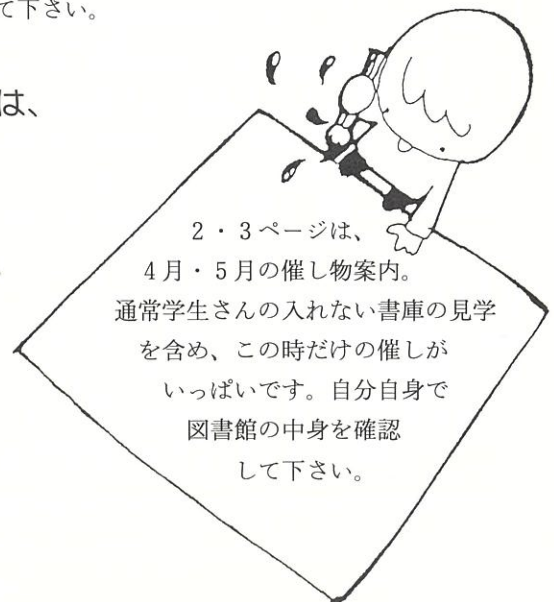 て下さい。
は、
2・3ページは、
4月・5月の催し物案内。
通常学生さんの入れない書庫の見学
を含め、この時だけの催しが
いっぱいです。自分自身で
図書館の中身を確認
して下さい。